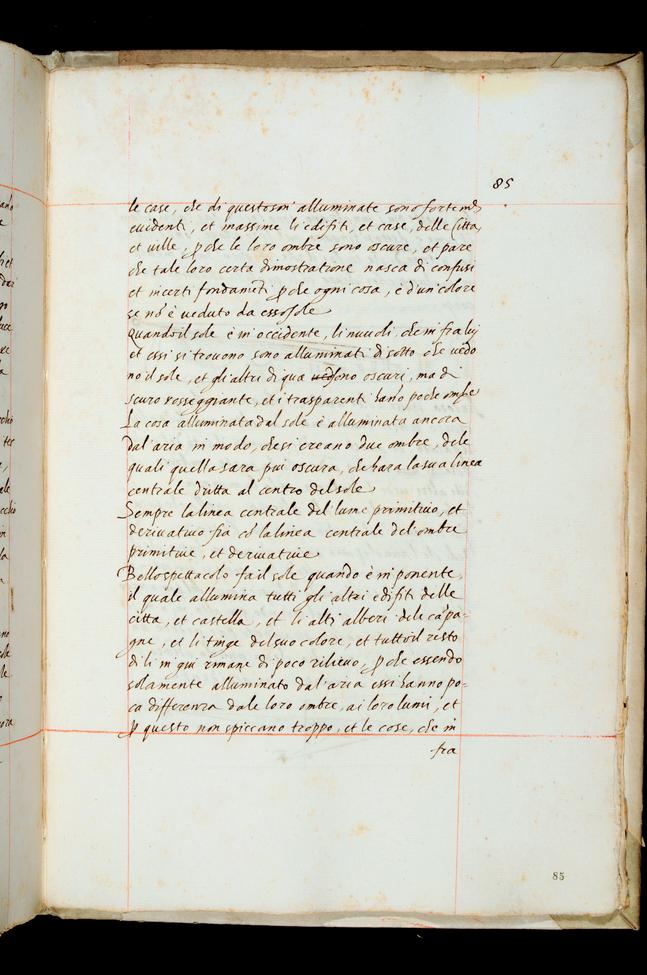 85
le case, che di questo son' alluminate sono forteme͂
evidenti, et massime li edifiti, et case, delle Citta,
et ville, p che le loro ombre sono oscure, et pare
che tale loro certa dimostratione nasca di confusi
et incerti fondame͂ti p che ogni cosa, è d'un colore
se no͂ è veduto da esso sole
Quando il sole è in occidente, li nuvoli, che in fra lui
et essi si trovono sono alluminati di sotto che vedo
no il sole, et gli altri di qua sono oscuri, ma d
scuro rosseggiante, et i trasparenti ha͂no poche ombre
La cosa alluminata dal sole è alluminata ancora
dal'aria in modo, che si creano due ombre, dele
quali quella sara piu oscura, che hara la sua linea
centrale dritta al centro del sole
Sempre la linea centrale del lume primitivo, et
derivativo fia co͂ la linea centrale del'ombre
primitive, et derivative
Bello spettacolo fa il sole quando è in ponente,
il quale allumina tutti gli altri edifiti delle
citta, et castella, et li alti alberi dele ca͂pa=
gne, et li tinge del suo colore, et tutto il resto
di li in giu rimane di poco rilievo, p che essendo
solamente alluminato dal'aria essi hanno po=
ca differenza dale loro ombre, ai loro lumi, et
p questo non spiccano troppo, et le cose, che in
fra
85